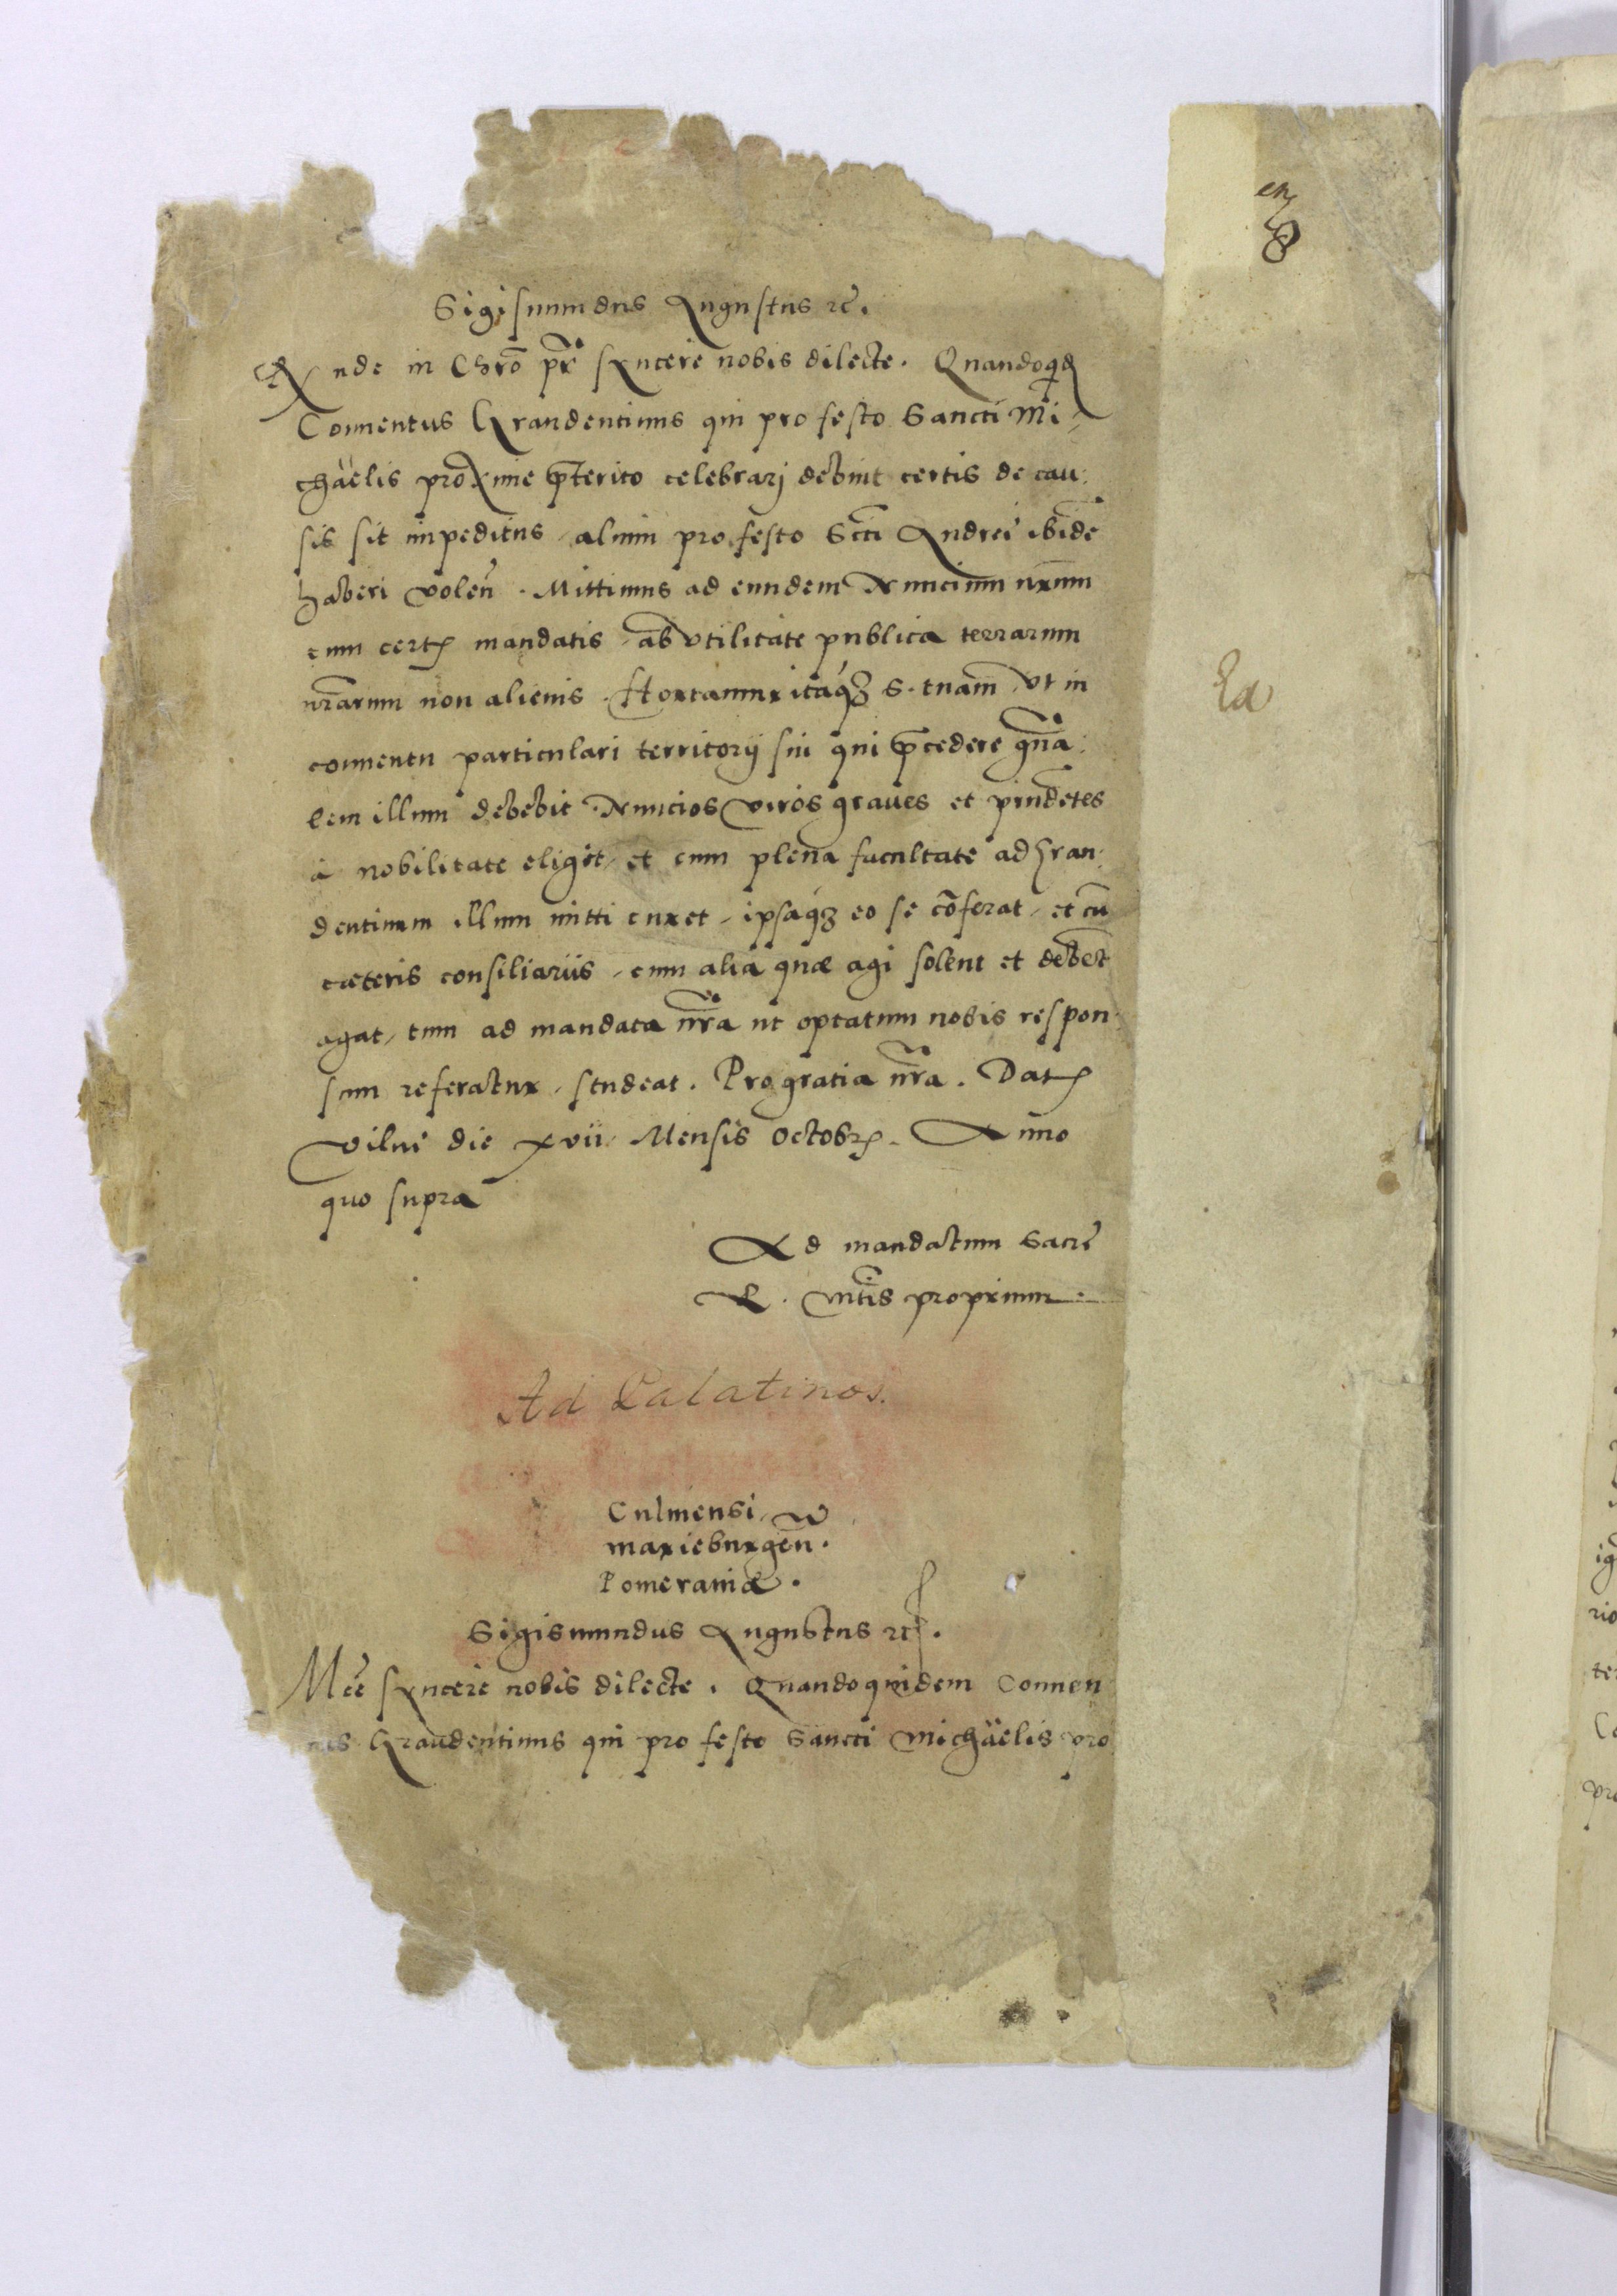 Sigismundus Augustus rc̃.
Rnde in Chrõ pr̃ syncere nobis dilecte. Quandoqd
Conuentus Graudentinus qui pro festo Sancti Mi-
chaëlis proxime p̃terito celebrarj debuit certis de cau:
sis sit impeditus, alium pro festo Scti Andreę ibidẽ
haberi volen̄. Mittimus ad eundem Nuncium nr̃um
cum certȩ mandatis, ab vtilitate publica terrarum
nr̃arum non alienis. Hortamur itaq́ȝ S. tuam vt in
conuentu particulari territorij sui qui p̃cedere gñã:
lem illum debebit, Nuncios viros graues et prudẽtes
à nobilitate eligat, et cum plena facultate ad Grau:
dentinum illum mitti curet, ipsaq́ȝ eo se cõferat, et cũ
cæteris consiliariis, cum alia quæ agi solent et debẽt
agat, tum ad mandata nr̃a ut optatum nobis respon:
sum referatur, studeat. Pro gratia nr̃a. Datȩ
Vilnę die xvii Mensis Octobrȩ. Anno
quo supra
Ad mandatum Sacrę
R. Mtis proprium.
Ad Palatinos.
Culmensi,
Marieburgen̄.
Pomeraniæ.
Sigismundus Augustus rc̃.
Mcẽ syncere nobis dilecte. Quandoquidem Conuen
tus Graudentinus qui pro festo Sancti Michaëlis pro